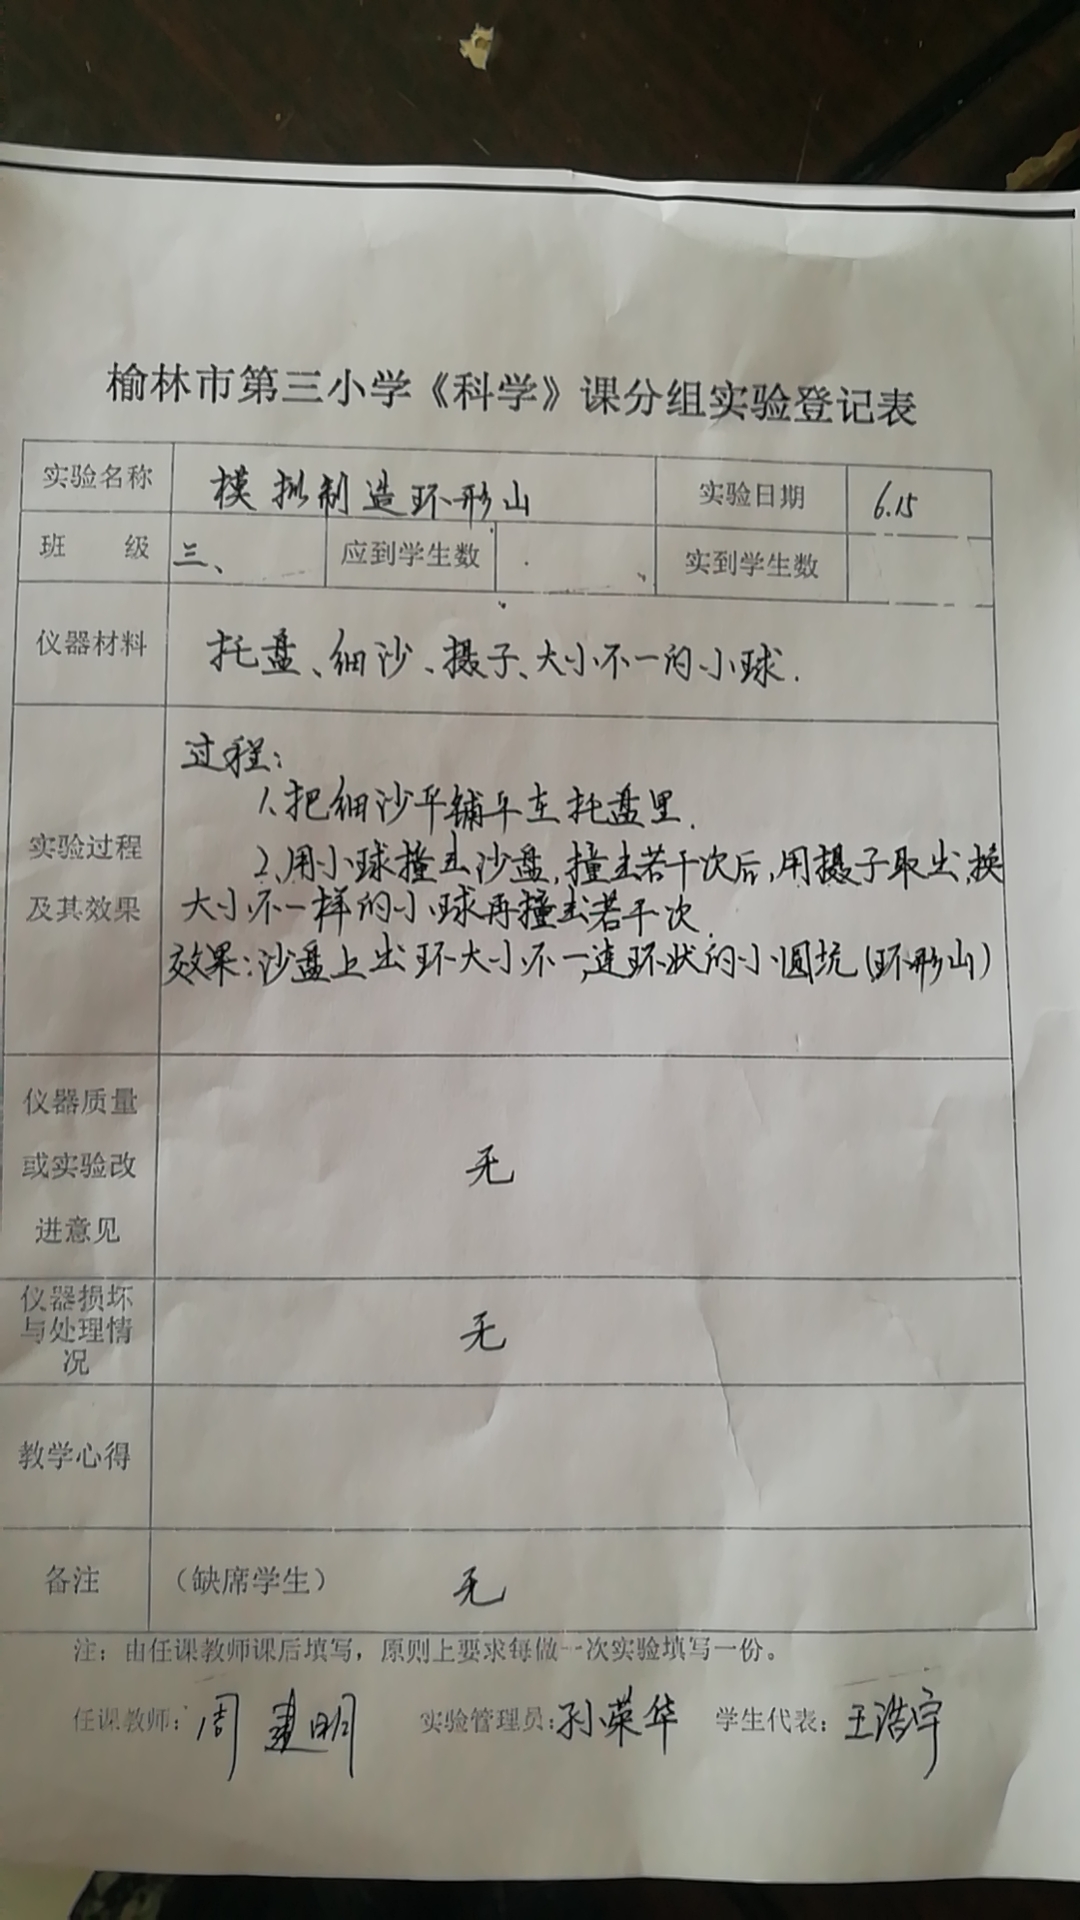 榆林市第三小学《科学》课分组实验登记表
实验名称 模拟制造环形山 实验日期 6.15
班 级 三、 应到学生数 实到学生数
仪器材料 托盘、细沙、摄子、大小不一的小球.
过程:
1、把细沙平铺平在托盘里.
实验过程
2、用小球撞击沙盘,撞击若干次后,用摄子取出,换
及其效果
大小不一样的小球再撞击若干次.
效果:沙盘上出环大小不一,连环状的小圆坑(环形山)
仪器质量
或实验改
进意见
无
仪器损坏
与处理情
况
无
教学心得
备注 (缺席学生) 无
注:由任课教师课后填写,原则上要求每做一次实验填写一份。
任课教师:周建明 实验管理员:孙荣华 学生代表:王浩宇